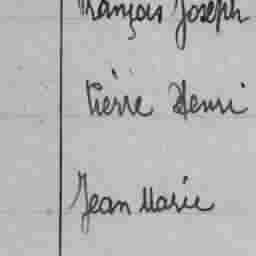 François Joseph
Pierre Henri
Jean Marie